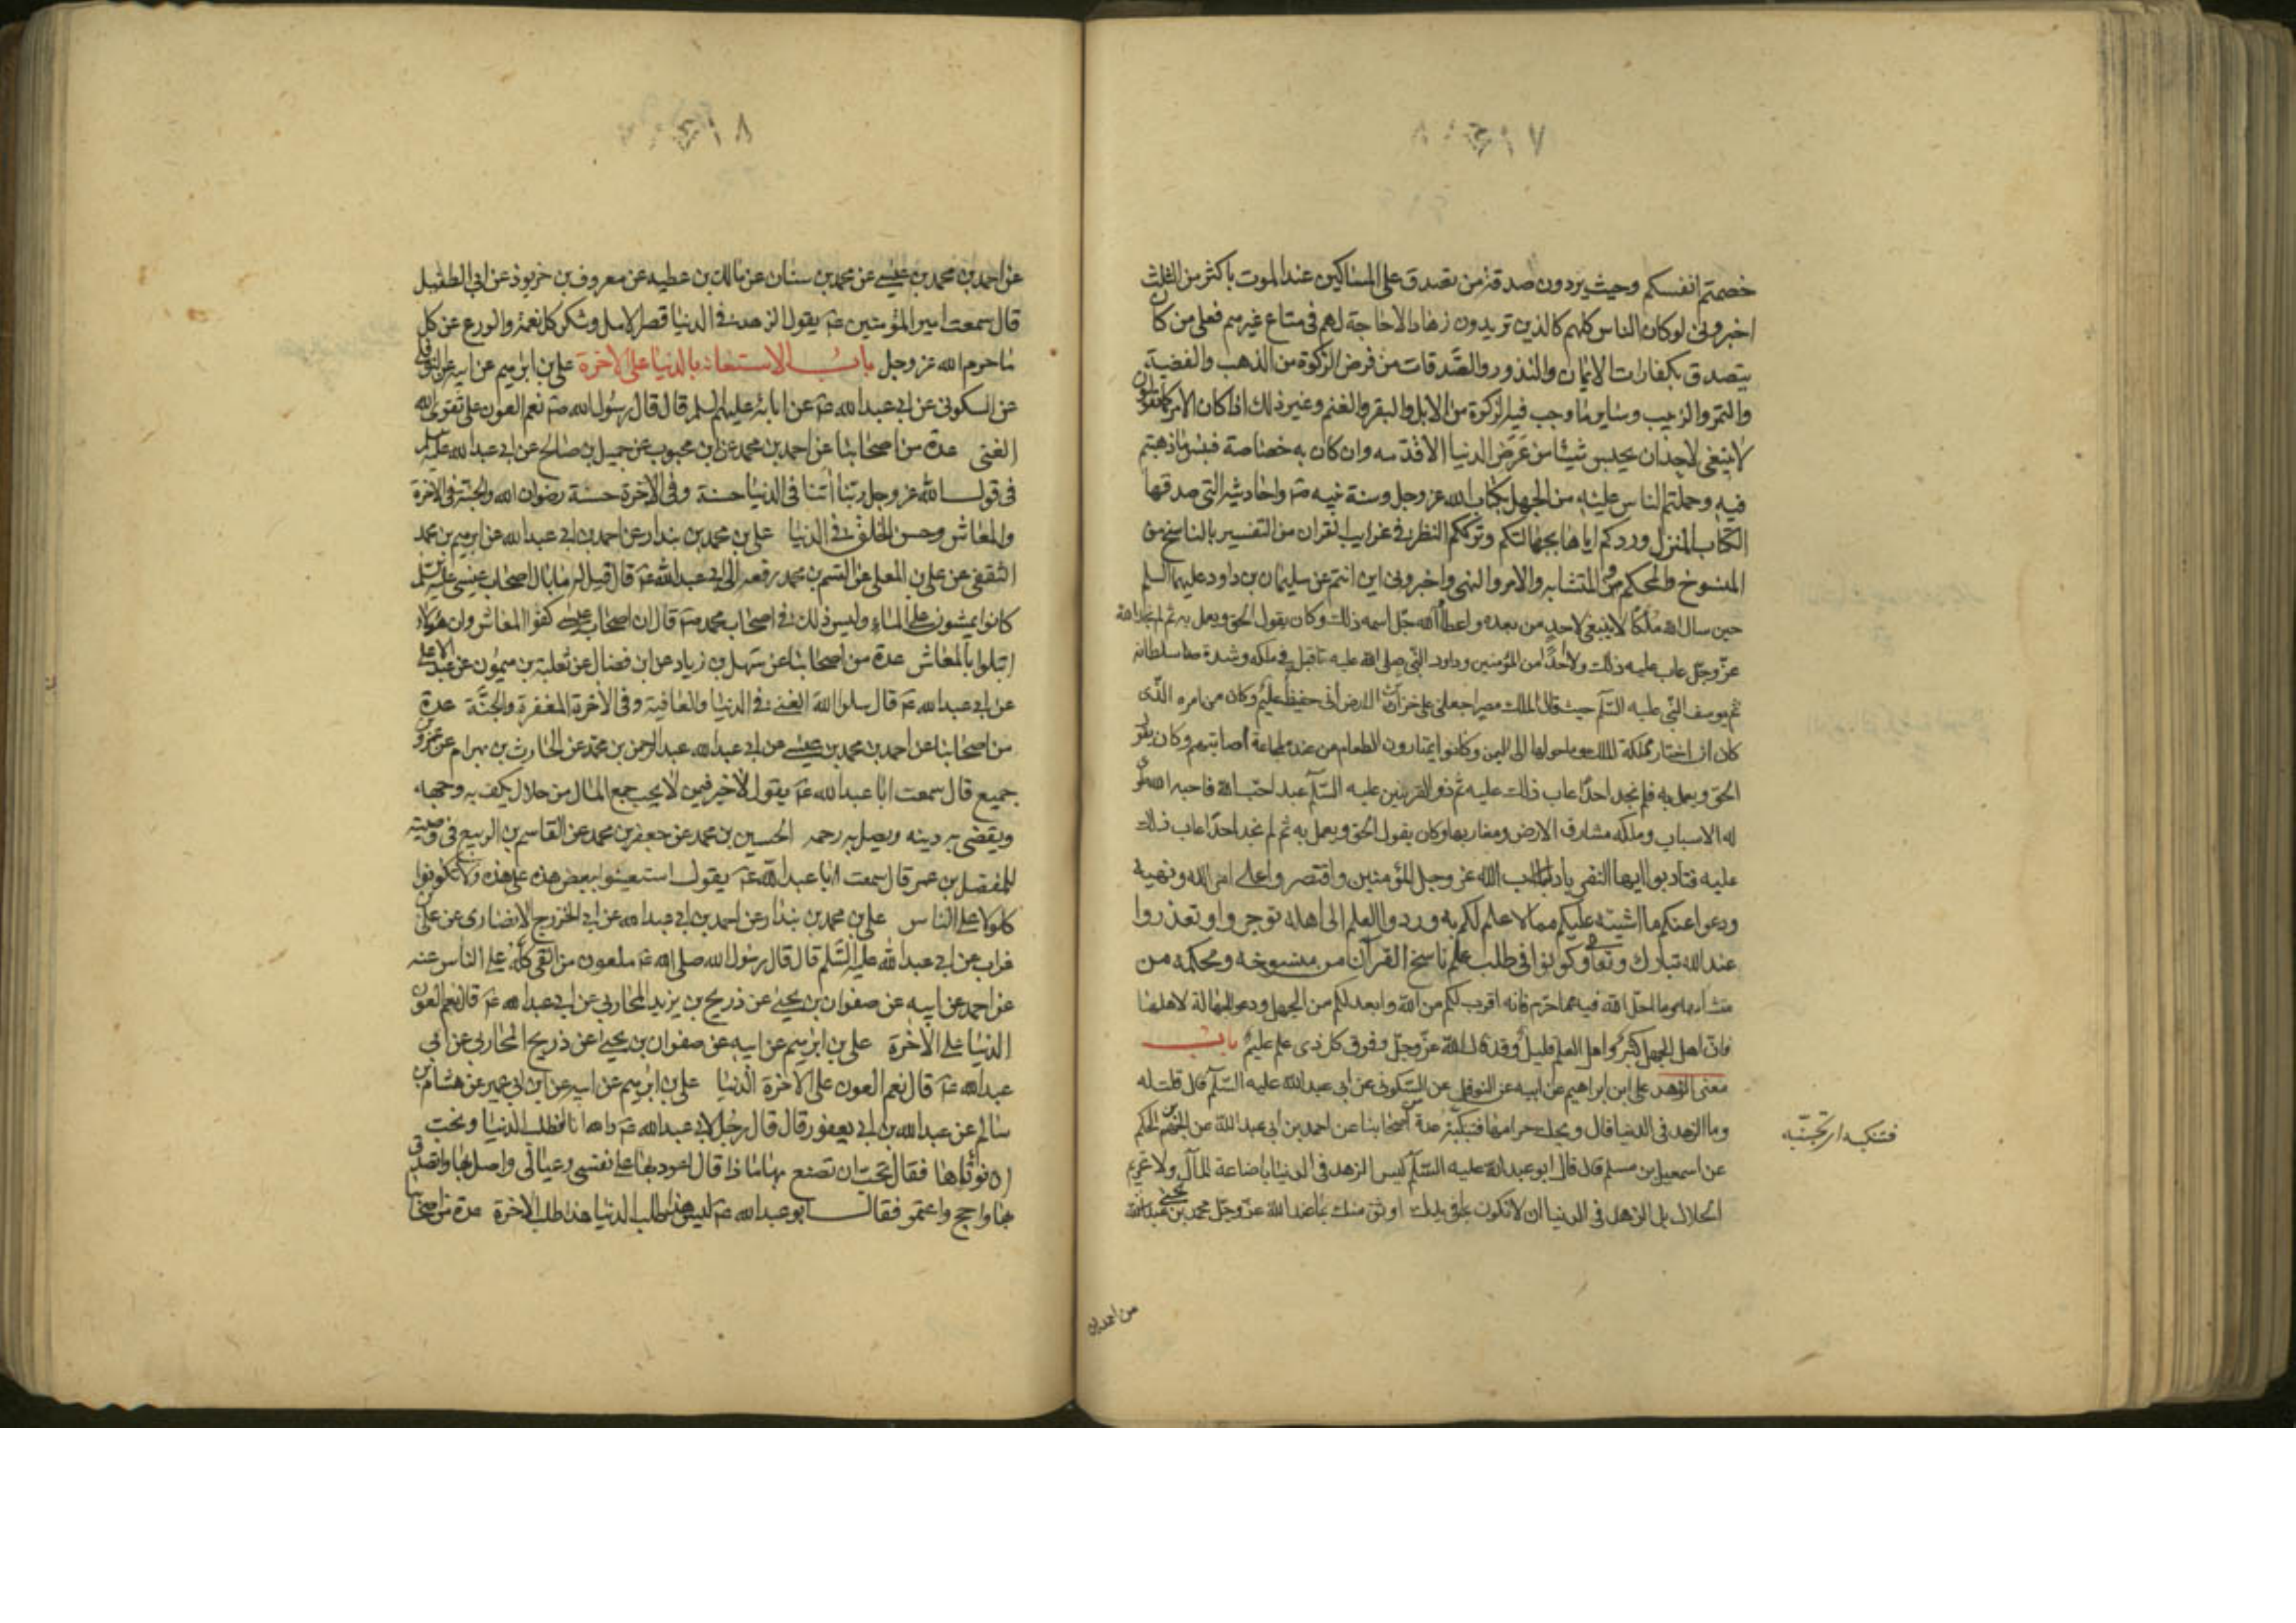 خصمتم انفسكم وحيث يردون صدقة من تصدق على المساكين عند الموت باكثر من الثلث
اخبرونى لو كان الناس كلهم كالذين تريدون زهادا لا حاجة لهم فى متاع غيرهم فعلى من كان
يتصدق بكفارات الايمان والنذور والصدقات من فرض الزكوة من الذهب والفضة
والتمر والزبيب وساير ما وجب فيه الزكوة من الابل والبقر والغنم وغير ذلك اذا كان الامر كما تقولون
لا ينبغى لاحد ان يحبس شيئا من عرض الدنيا الا قدمه وان كان به خصاصة فبئس ما ذهبتم
فيه وحملتم الناس عليه من الجهل بكتاب الله عز وجل وسنة نبيه صم واحاديثه التى صدقها
الكتاب المنزل وردكم اياها بجهالتكم وترككم النظر فى غرايب القران من التفسير بالناسخ من
المنسوخ والمحكم من المتشابه والامر والنهى واخبرونى اين انتم عن سليمان بن داود عليهما السلم
حين سال الله ملكا لا ينبغى لاحد من بعده واعطاه الله جل اسمه ذلك وكان يقول الحق ويعمل به ثم لم نجد الله
عز وجل عاب عليه ذلك ولا احدا من المؤمنين وداود النبى صلى الله عليه ما قبل فى ملكه وشدة سلطانه
ثم يوسف النبى عليه السلم حيث قال لملك مصر اجعلنى على خزائن الارض انى حفيظ عليم وكان من امره الذى
كان ان اختار مملكة الملك وما حولها الى اليمن وكانوا يمتارون الطعام من عنده لمجاعة اصابتهم وكان يقول
الحق ويعمل به فلم نجد احدا عاب ذلك عليه ثم ذو القرنين عليه السلم عبد احب الله فاحبه الله
له الاسباب وملكه مشارق الارض ومغاربها وكان يقول الحق ويعمل به ثم لم نجد احدا عاب ذلك
عليه فتادبوا ايها النفر باداب الله عز وجل للمؤمنين واقتصروا على امر الله ونهيه
ودعوا عنكم ما اشتبه عليكم مما لا علم لكم به وردوا العلم الى اهله توجروا وتعذروا
عند الله تبارك وتعالى وكونوا فى طلب علم ناسخ القرآن من منسوخه ومحكمه من
متشابهه وما احل الله فيه مما حرم فانه اقرب لكم من الله وابعد لكم من الجهل ودعوا الجهالة لاهلها
فان اهل الجهل كثير واهل العلم قليل وقد قال الله عز وجل وفوق كل ذى علم عليم باب
معنى الزهد على ابن ابراهيم عن ابيه عن النوفلى عن السكونى عن ابى عبد الله عليه السلم قال قلت له
وما الزهد فى الدنيا قال ويحك حرامها فتنكبه عدة من اصحابنا عن احمد بن ابى عبد الله عن الجهم بن الحكم
عن اسمعيل بن مسلم قال قال ابو عبد الله عليه السلم ليس الزهد فى الدنيا باضاعة المال ولا تحريم
الحلال بل الزهد فى الدنيا ان لا تكون بما فى يدك اوثق منك بما عند الله عز وجل محمد بن يحيى
فتنكبه اى تجنبه
عن احمد بن
١٨
عن احمد بن محمد بن عيسى عن محمد بن سنان عن مالك بن عطيه عن معروف بن خربوذ عن ابى الطفيل
قال سمعت امير المؤمنين عم يقول الزهد فى الدنيا قصر الامل وشكر كل نعمة والورع عن كل
ما حرم الله عز وجل باب الاستعانه بالدنيا على الاخرة على بن ابرهيم عن ابيه عن النوفلى
عن السكونى عن ابى عبد الله عم عن ابائه عليهم السلم قال قال رسول الله صم نعم العون على تقوى الله
الغنى عدة من اصحابنا عن احمد بن محمد عن ابن محبوب عن جميل بن صالح عن ابى عبد الله عليه السلم
فى قول الله عز وجل ربنا اتنا فى الدنيا حسنة وفى الاخرة حسنة رضوان الله والجنة فى الاخرة
والمعاش وحسن الخلق فى الدنيا على بن محمد بن بندار عن احمد بن ابى عبد الله عن ابرهيم بن محمد
الثقفى عن على بن المعلى عن القسم بن محمد رفعه الى ابى عبد الله عم قال قيل له ما بال اصحاب عيسى عليه السلم
كانوا يمشون على الماء وليس ذلك فى اصحاب محمد صم قال ان اصحاب عيسى كفوا المعاش وان هؤلاء
ابتلوا بالمعاش عدة من اصحابنا عن سهل بن زياد عن ابن فضال عن ثعلبة بن ميمون عن عبد الاعلى
عن ابى عبد الله عم قال سلوا الله الغنى فى الدنيا والعافية وفى الاخرة المغفرة والجنة عدة
من اصحابنا عن احمد بن محمد بن عيسى عن ابى عبد الله عبد الرحمن بن محمد عن الحارث بن بهرام عن عمرو بن
جميع قال سمعت ابا عبد الله عم يقول لا خير فيمن لا يحب جمع المال من حلال يكف به وجهه
ويقضى به دينه ويصل به رحمه الحسين بن محمد عن جعفر بن محمد عن القاسم بن الربيع فى وصيته
للمفضل بن عمر قال سمعت ابا عبد الله عم يقول استعينوا ببعض هذه على هذه ولا تكونوا
كلولا على الناس على بن محمد بن بندار عن احمد بن ابى عبد الله عن ابى الخزرج الانصارى عن على بن
غراب عن ابى عبد الله عليه السلم قال قال رسول الله صلى الله عم ملعون من القى كله على الناس عنه
عن احمد عن ابيه عن صفوان بن يحيى عن ذريح بن يزيد المحاربى عن ابى عبد الله عم قال نعم العون
الدنيا على الاخرة على بن ابرهيم عن ابيه عن صفوان بن يحيى عن ذريح المحاربى عن ابى
عبد الله عم قال نعم العون على الاخرة الدنيا على بن ابرهيم عن ابيه عن ابن ابى عمير عن هشام بن
سالم عن عبد الله بن ابى يعفور قال قال رجل لابى عبد الله عم والله انا لنطلب الدنيا ونحب
ان نوتاها فقال تحب ان تصنع بها ماذا قال اعود بها على نفسى وعيالى واصل بها واتصدق
بها واحج واعتمر فقال ابو عبد الله عم ليس هذا طلب الدنيا هذا طلب الاخرة عدة من اصحابنا